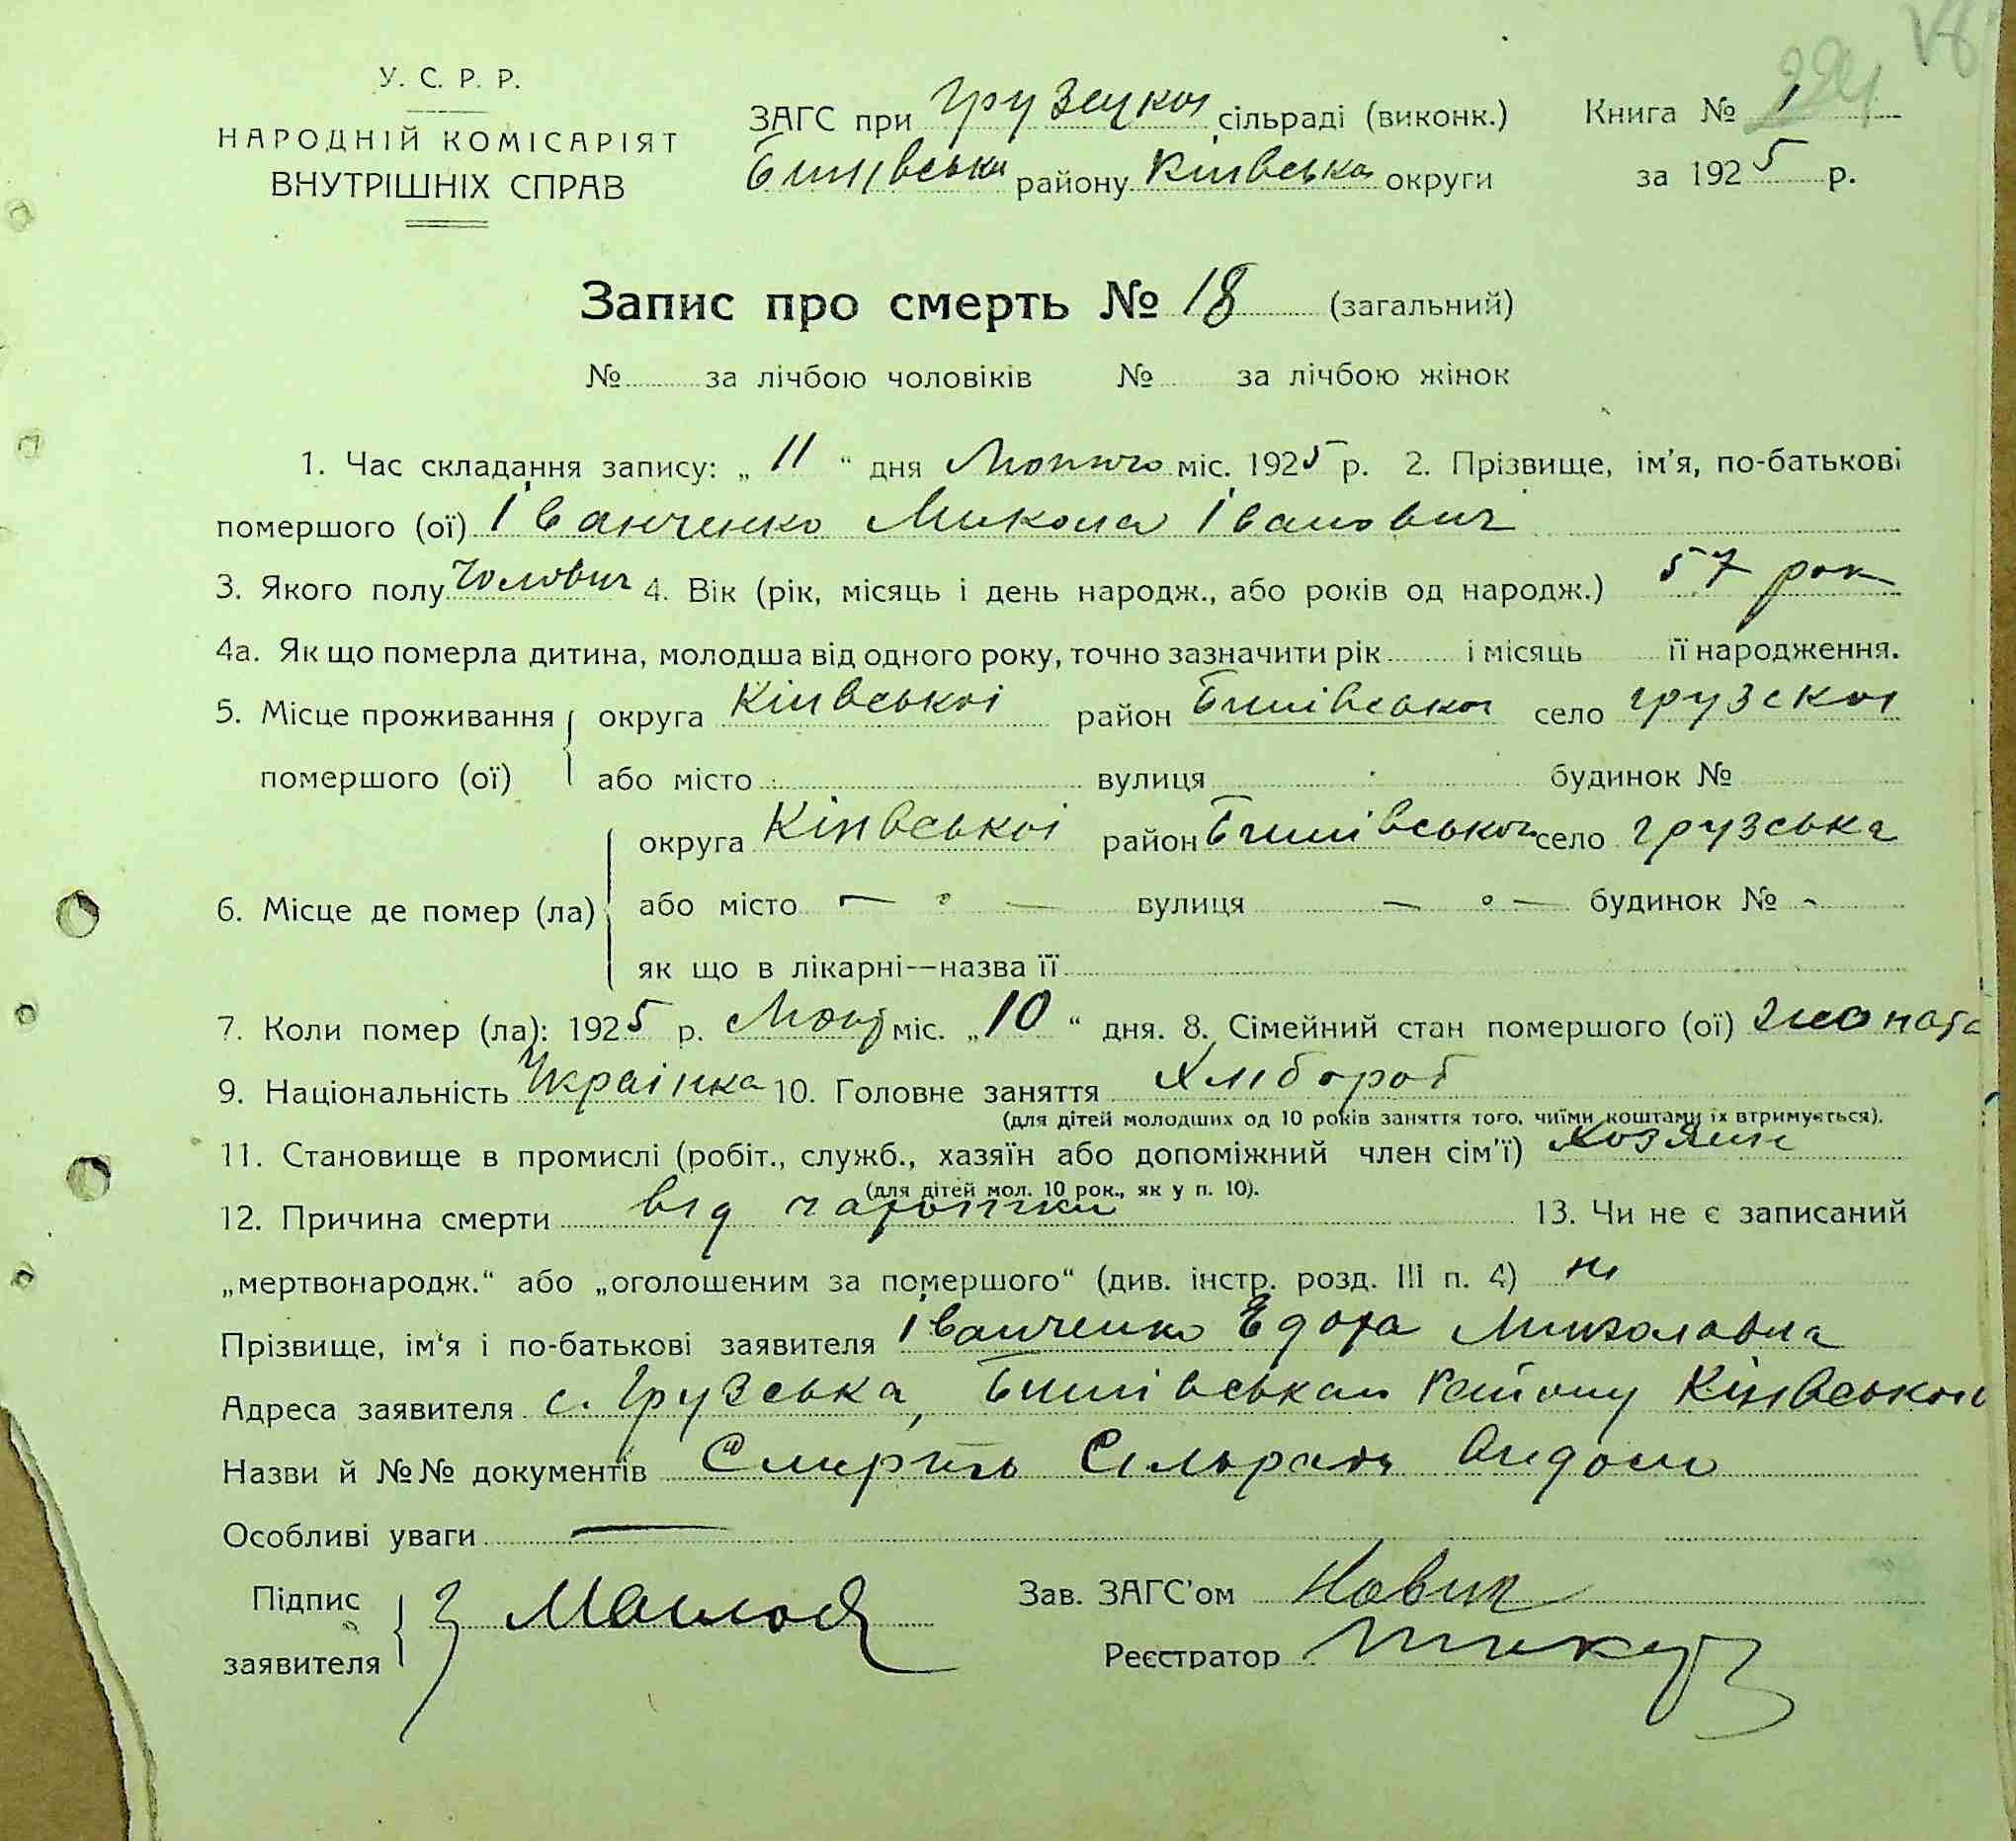 У. С. Р. Р.
НАРОДНІЙ КОМІСАРІЯТ
ВНУТРІШНІХ СПРАВ
ЗАГС при сільраді (виконк.)
району Київської округи
Книга № 1
за 1925 р.
Запис про смерть № 18 (загальний)
№ за лічбою чоловіків № за лічбою жінок
1. Час складання запису: „ 11 “ дня Лютого міс. 1925 р. 2. Прізвище, ім’я, по-батькові
помершого (ої) Іванченко Микола Іванович
3. Якого полу 4. Вік (рік, місяць і день народж., або років од народж.) 57 рок
4а. Як що померла дитина, молодша від одного року, точно зазначити рік і місяць її народження.
5. Місце проживання округа Київської район село
помершого (ої) або місто вулиця будинок №
округа Київської район село грузська
6. Місце де помер (ла) або місто — вулиця — будинок № -
як що в лікарні—назва її
7. Коли помер (ла): 1925 р. міс. „10“ дня. 8. Сімейний стан помершого (ої)
9. Національність Українка 10. Головне заняття Хлібороб
(для дітей молодших од 10 років заняття того, чиїми коштами їх втримується).
11. Становище в промислі (робіт., служб., хазяїн або допоміжний член сім’ї) хозяин
(для дітей мол. 10 рок., як у п. 10).
12. Причина смерти від 13. Чи не є записаний
„мертвонародж.“ або „оголошеним за помершого“ (див. інстр. розд. III п. 4) ні
Прізвище, ім‘я і по-батькові заявителя Іванченко
Адреса заявителя с. Грузська, Району Київської
Назви й №№ документів
Особливі уваги —
Підпис
заявителя
Зав. ЗАГС’ом Новик
Реєстратор